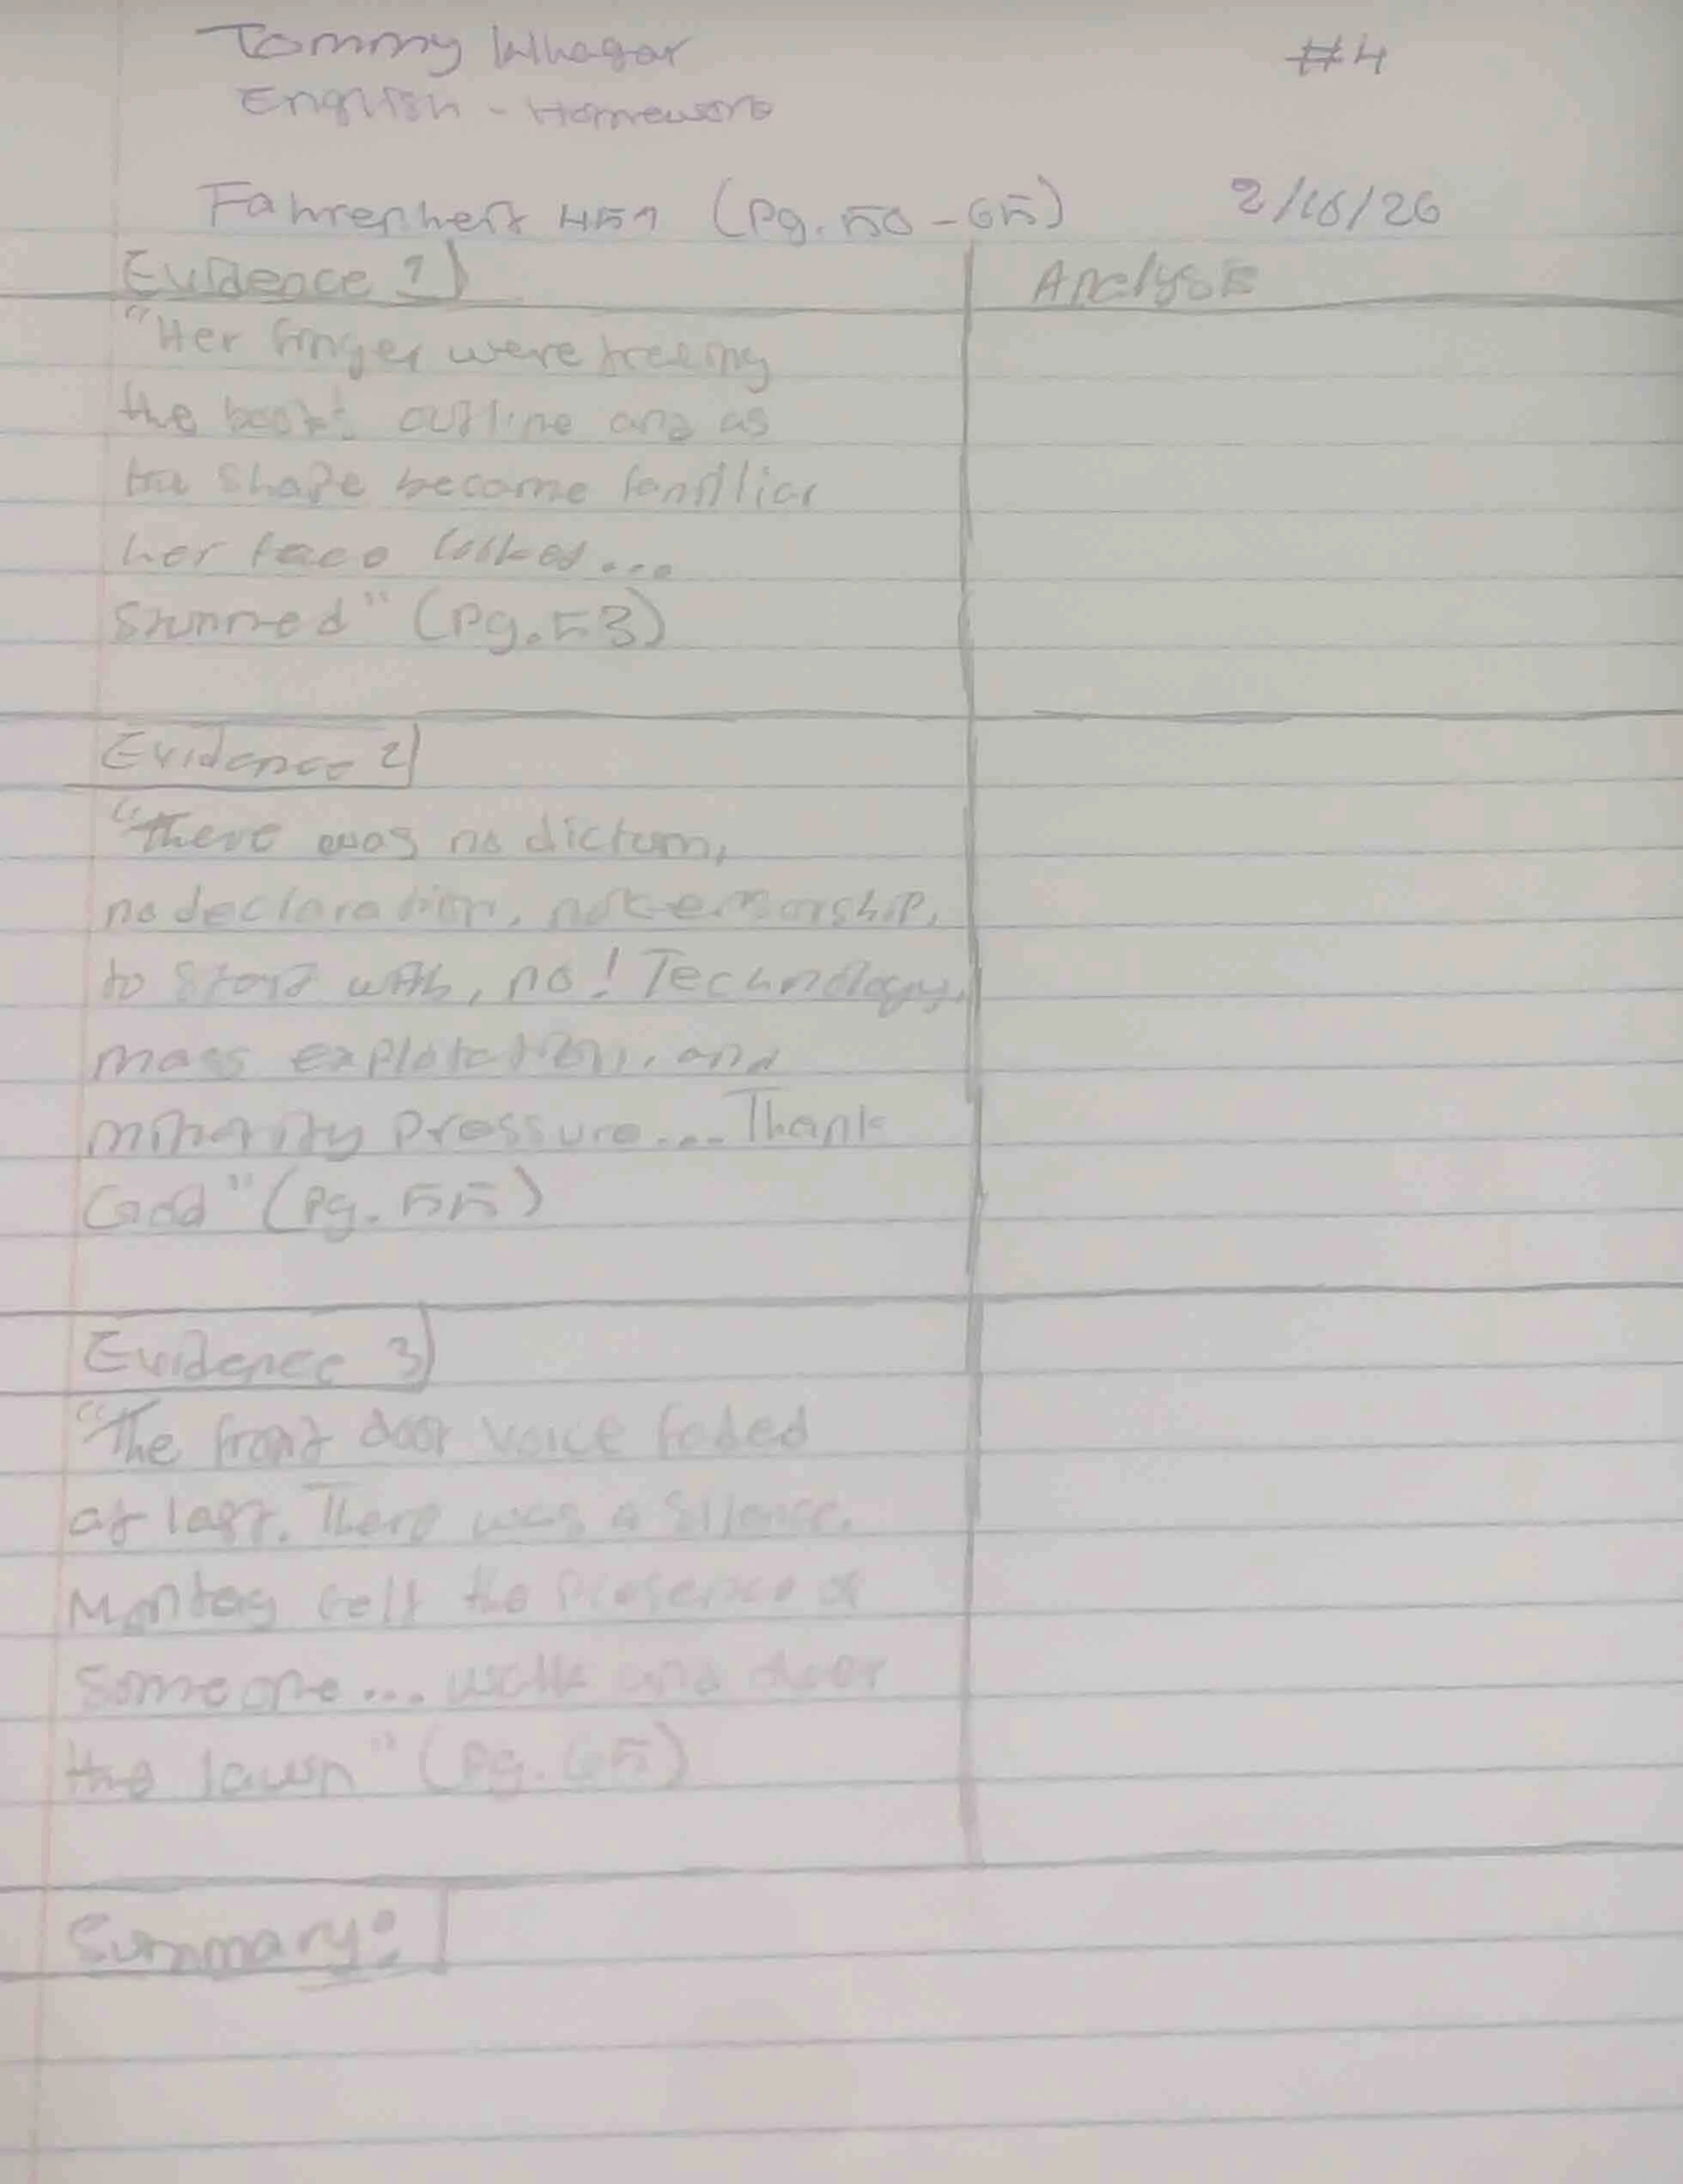 Tommy
#4
English - Homework
Fahrenheit 451 (Pg. 50 - 65)
2/16/26
Evidence 1)
Analysis
"Her finger were freeing
the book's outline and as
the shape became familiar
her face looked...
Stunned" (Pg. 53)
Evidence 2)
"There was no dictum,
no declaration, no censorship,
to start with, no! Technology,
mass explotation, and
minority pressure... Thank
God" (Pg. 55)
Evidence 3)
"The front door voice faded
at last. There was a silence.
Montag felt the presence of
Someone... walk and door
the lawn" (Pg. 65)
Summary: